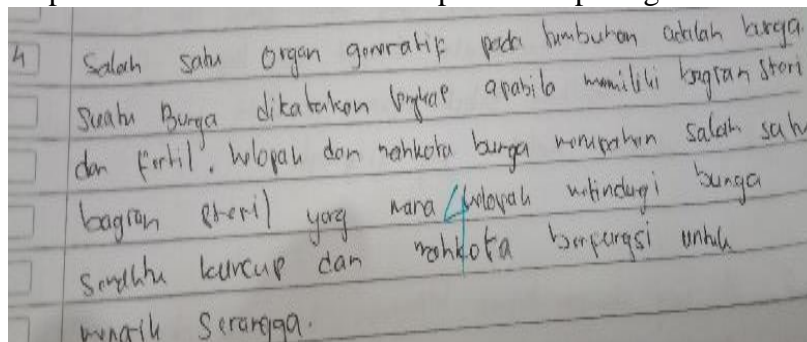 4 Salah satu organ generatif pada tumbuhan adalah bunga.
Suatu Bunga dikatakan lengkap apabila memiliki bagian steril
dan fertil. kelopak dan mahkota bunga merupakan salah satu
bagian steril yang mana kelopak melindungi bunga
kuncup dan mahkota berfungsi untuk
menarik Serangga.